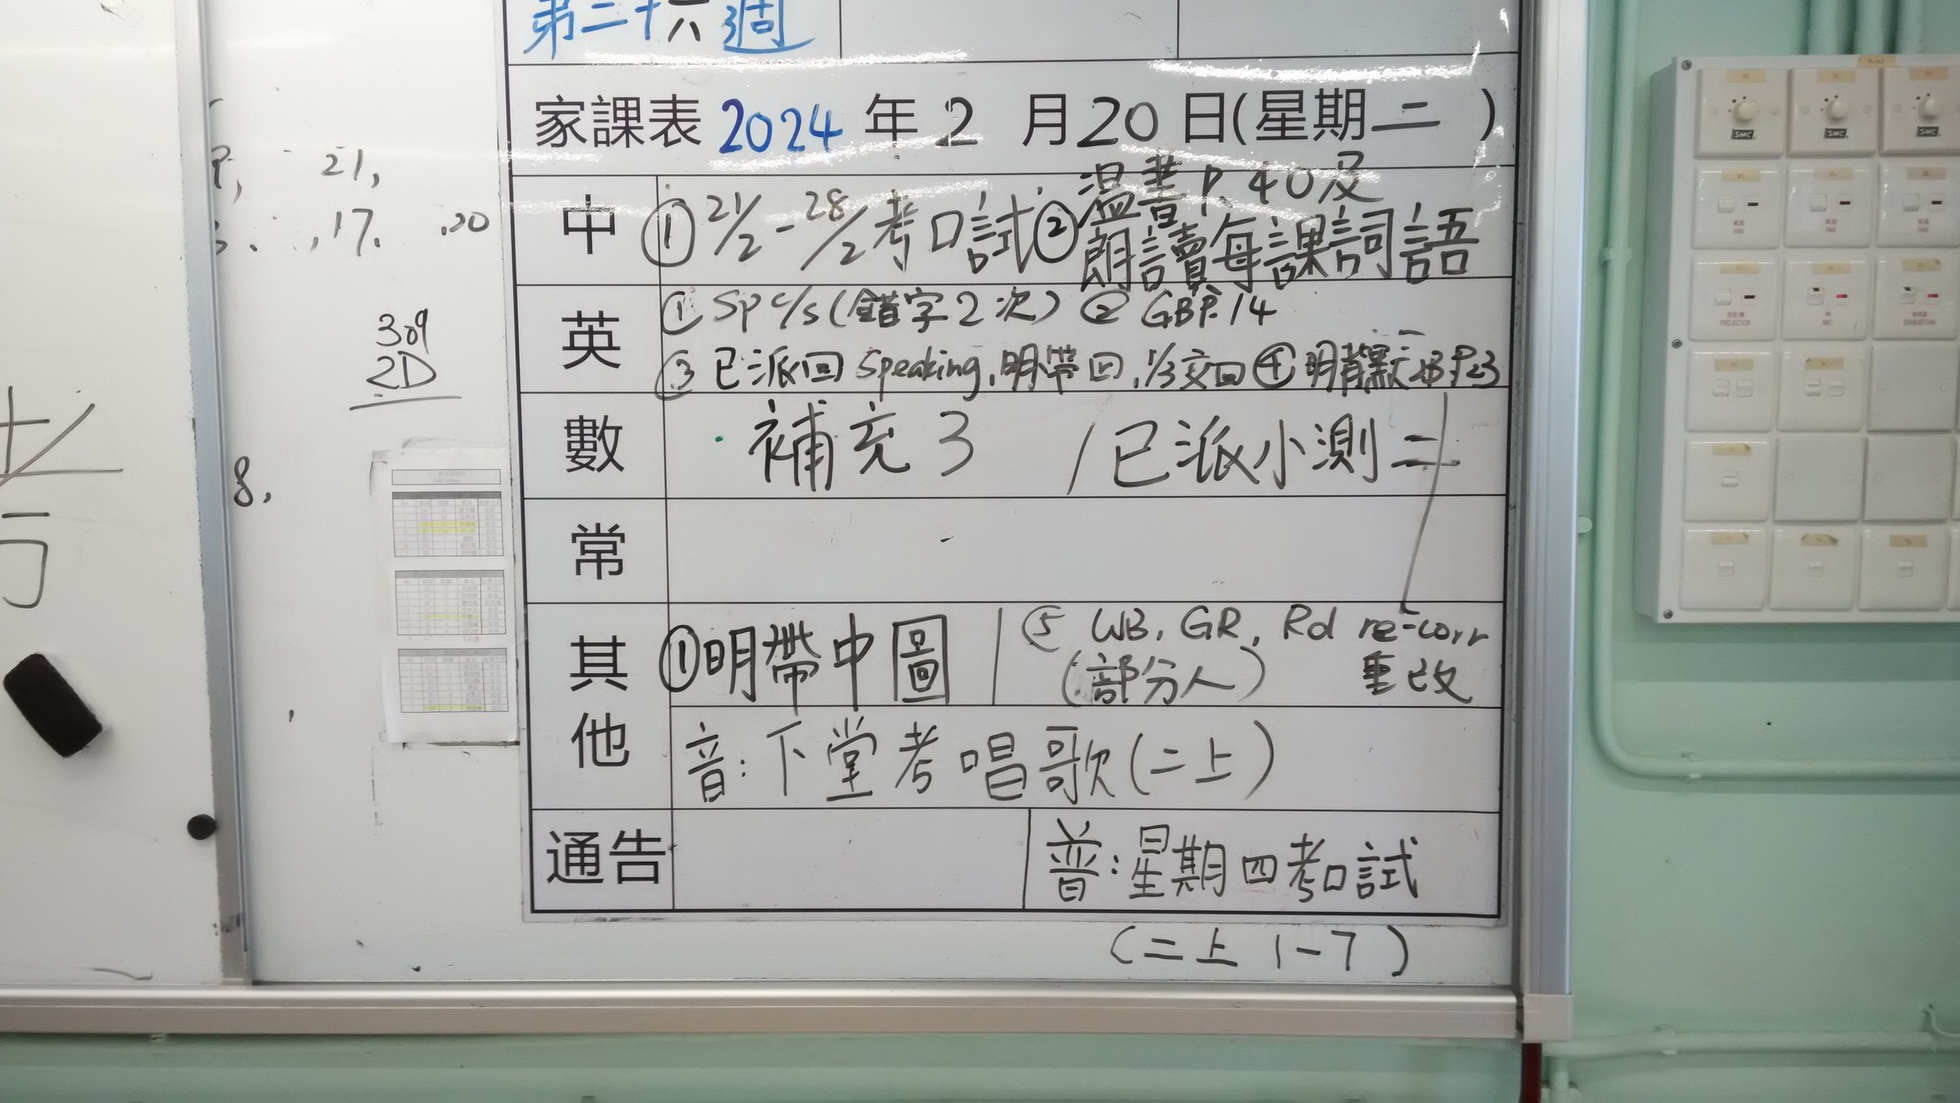 第二十六週
家課表 2024 年 2 月 20 日(星期二)
中 ① 21/2 - 28/2 考口試 ② 溫書 P.40及
朗讀每課詞語
英 ① Sp c/s (錯字2次) ② GB P.14
③ 已派回 Speaking, 明帶回, 1/3交回 ④ 明背默 P.23
數 補充3 / 已派小測二
常
其他 ① 明帶中圖 ⑤ WB, GR, Rd re-corr
(部分人) 重改
音: 下堂考唱歌(二上)
通告 普: 星期四考口試
(二上 1-7)
21,
17. 20
309
2D
8,
SMC
SMC
SMC